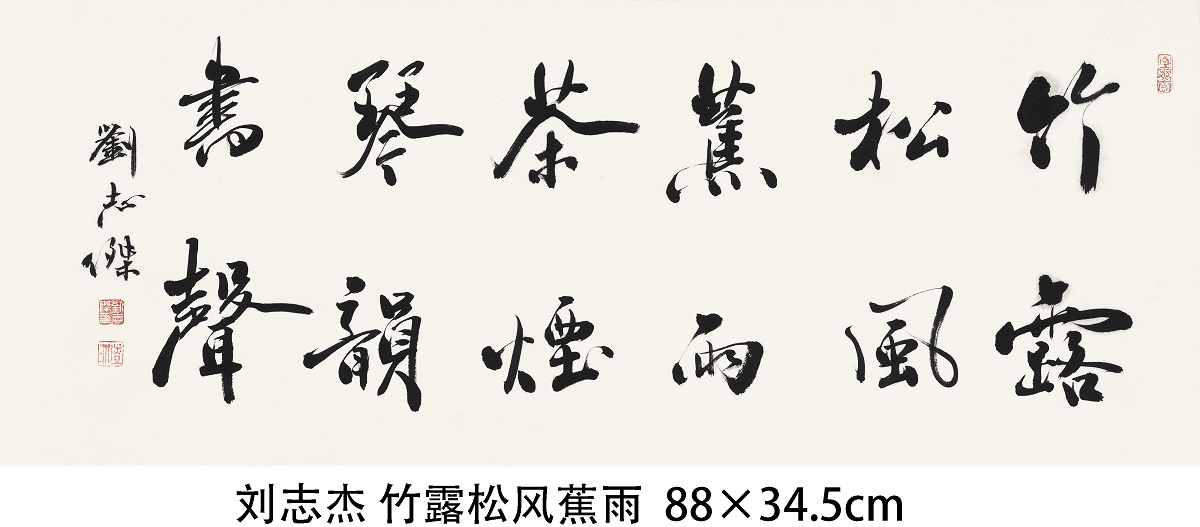 竹露
松風
蕉雨
茶煙
琴韻
書聲
劉志傑
刘志杰 竹露松风蕉雨 88×34.5cm